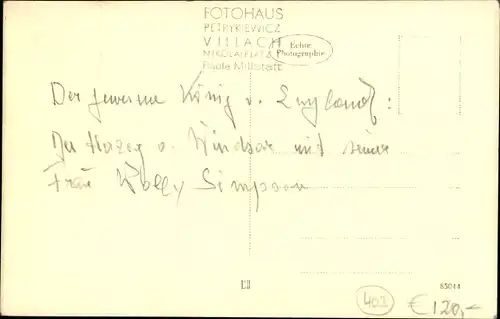 FOTOHAUS
PETRYKIEWICZ
VILLACH
NIKOLAIPLATZ
Filiale Millstatt
Echte
Photographie
Der gewesene König v. England:
Der Herzog v. Windsor mit seiner
Frau Wally Simpson
83044
402
€ 120,-